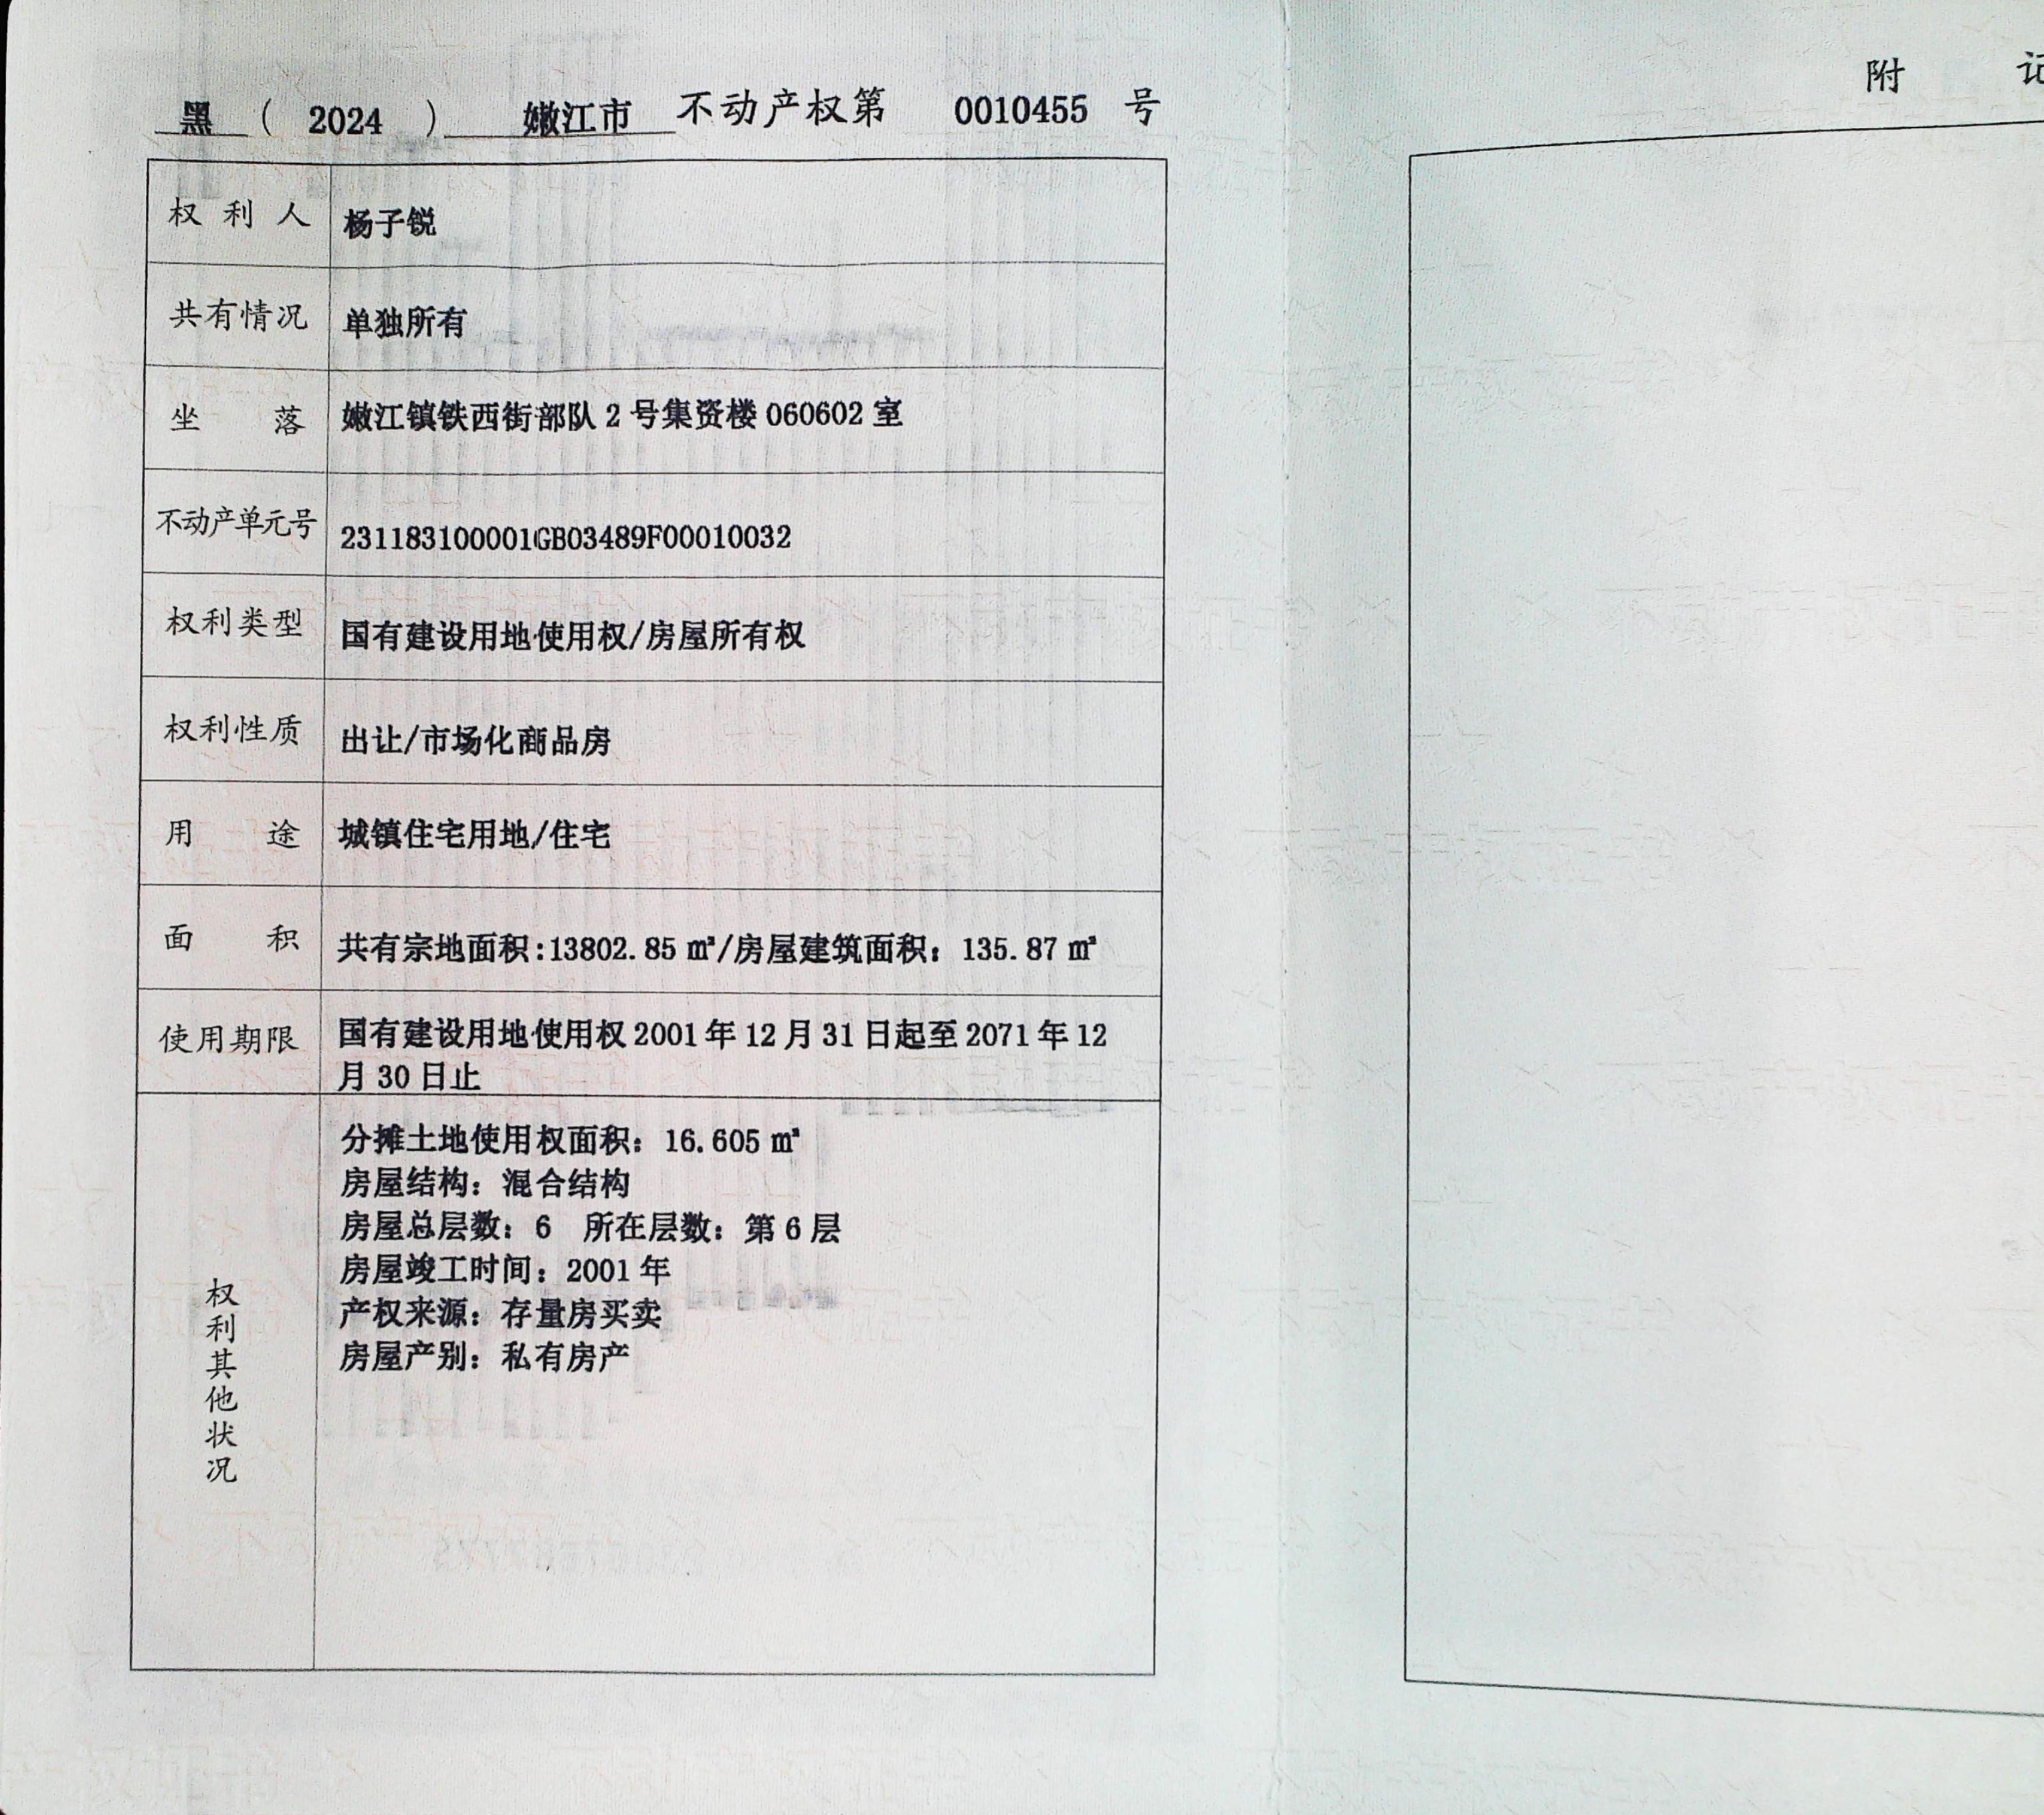 黑 ( 2024 ) 嫩江市 不动产权第 0010455 号
权利人 杨子锐
共有情况 单独所有
坐落 嫩江镇铁西街部队 2 号集资楼 060602 室
不动产单元号 231183100001GB03489F00010032
权利类型 国有建设用地使用权/房屋所有权
权利性质 出让/市场化商品房
用途 城镇住宅用地/住宅
面积 共有宗地面积:13802.85 ㎡/房屋建筑面积：135.87 ㎡
使用期限 国有建设用地使用权 2001 年 12 月 31 日起至 2071 年 12
月 30 日止
权利其他状况
分摊土地使用权面积：16.605 ㎡
房屋结构：混合结构
房屋总层数：6 所在层数：第 6 层
房屋竣工时间：2001 年
产权来源：存量房买卖
房屋产别：私有房产
附 记